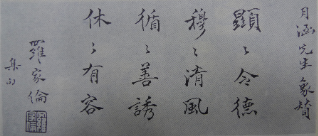 月涵先生象贊
顯〻令德
穆〻清風
循〻善誘
休〻有容
羅家倫
集句